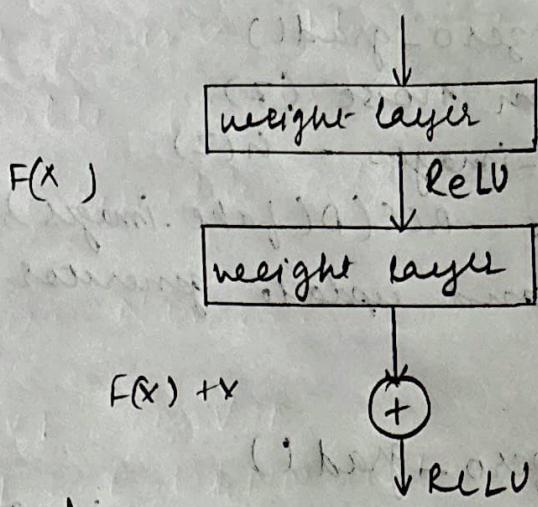 weight layer
F(X)
ReLU
weight layer
F(X) + X
+
ReLU